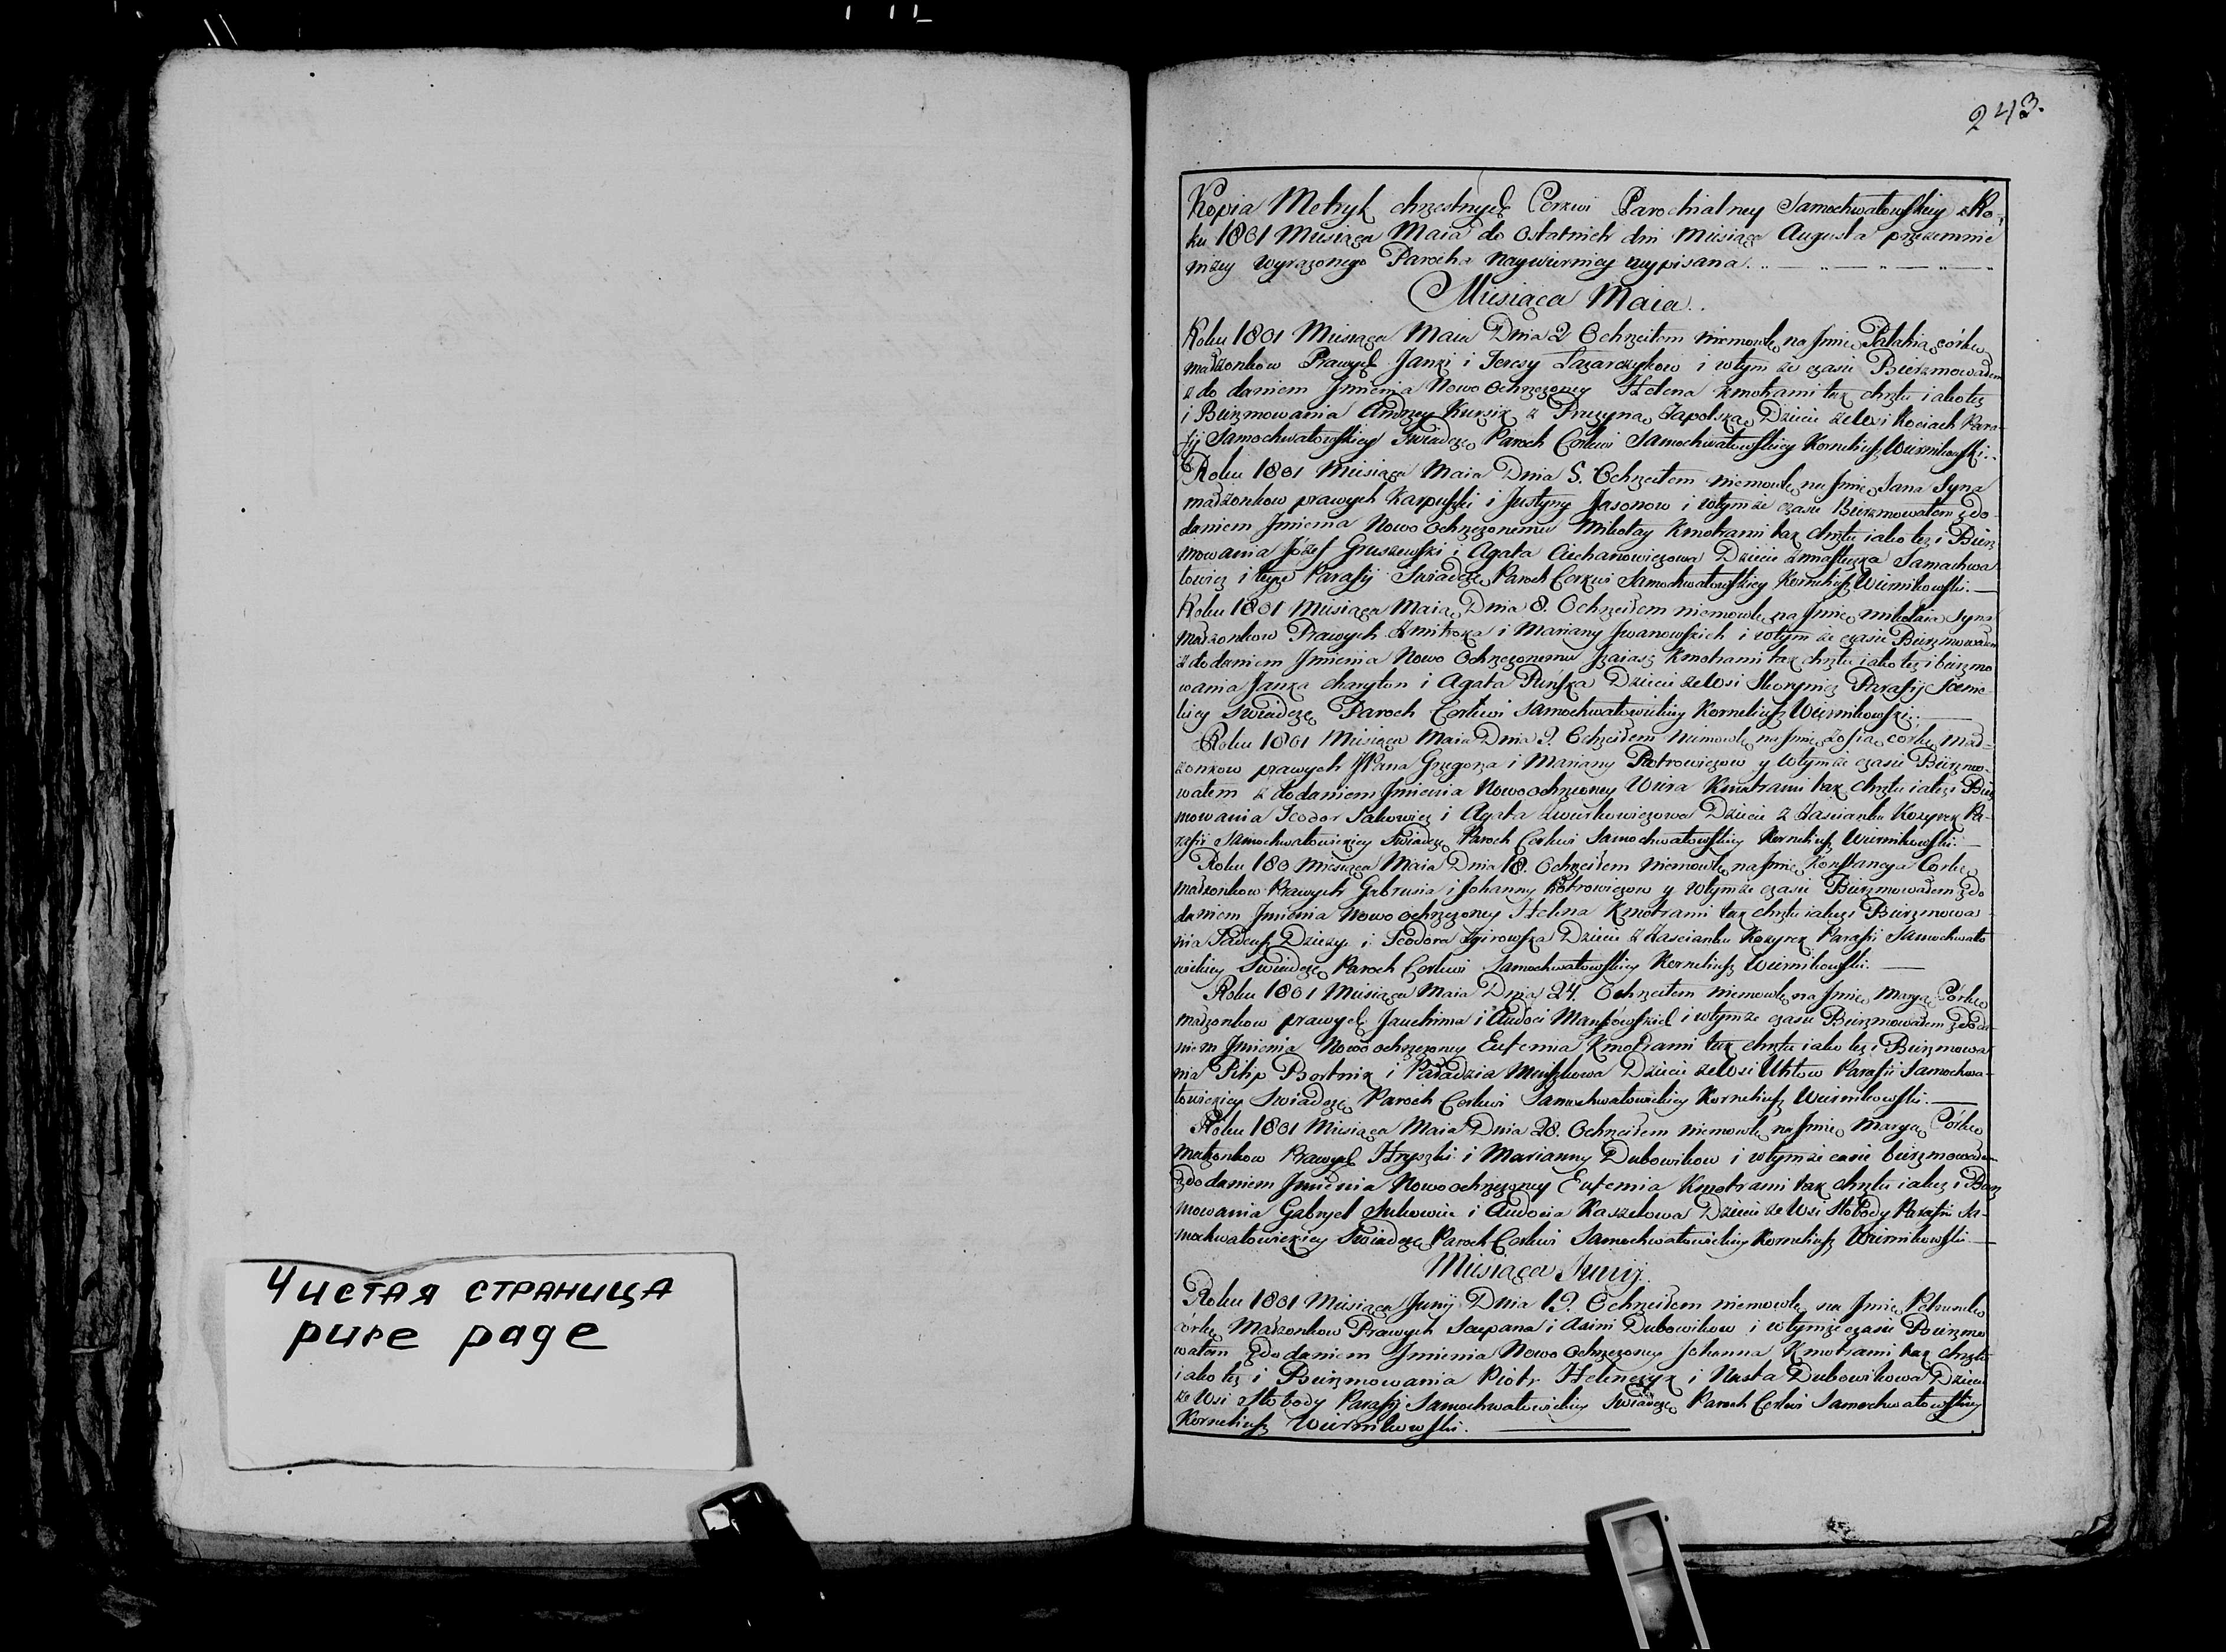 Чистая страница
pure page
243.
Kopia Metryk chrzestnych Cerkwi Parochialney Samochwałowskiey z Ro-
ku 1801 Miesiąca Maia do ostatnich dni Miesiąca Augusta przezemnie
niżey wyrażonego Parocha naywierniey wypisana.
Miesiąca Maia.
Roku 1801 Miesiąca Maia Dnia 2 Ochrzciłem niemowlę na Jmie Pałahia córkę
małżonkow Prawych Janki i Teresy Łazarczykow i wtym że czasie Bierzmowałem
z do daniem Jmienia Nowo Ochrzczoney Helena Kmotrami tak chrztu iako też
i Bierzmowania Andrzey Kursik z Pruzyną Zapolską Dziecie ze Wsi Kociach Para-
fij Samochwałowskiey Swiadczę Paroch Cerkwi Samochwałowskiey Korneliusz Wiernikowski.
Roku 1801 Miesiąca Maia Dnia 5. Ochrzciłem niemowlę na Jmie Jana Syna
małżonkow prawych Karpuszki i Justyny Jasonow i wtym że czasie Bierzmowałem z do-
daniem Jmienia Nowo ochrzczonemu Mikołay Kmotrami tak chrztu iako też i Bierz
mowania Józef Gruszewski i Agata Ciechanowiczowa Dziecie z miasteczka Samachwa-
łowicz i teyże Parafij Swiadczę Paroch Cerkwi Samochwałowskiey Korneliusz Wiernikowski.
Roku 1801 Miesiąca Maia Dnia 8. Ochrzciłem niemowlę na Jmie Mikołaia Syna
małżonkow Prawych Zmitroka i Maryany Jwanowskich i wtym że czasie Bierzmowałem
z do daniem Jmienia Nowo Ochrzczonemu Jzaiasz Kmotrami tak chrztu iako też i bierzmo
wania Janka Charyton i Agata Dziecie ze Wsi Skorynicz Parafij
Swiadczę Paroch Cerkwi Samochwałowickiey Korneliusz Wiernikowski.
Roku 1801 Miesiąca Maia Dnia 9. Ochrzciłem niemowlę na Jmie Zofia corkę mał-
żonkow prawych JPana Grzegorza i Maryany Piotrowiczow y wtym że czasie Bierzmo-
wałem z do daniem Jmienia Nowoochrzczoney Wiera Kmotrami tak chrztu iako też i Bierz
mowania Teodor Sakowicz i Agata Dziecie z Zascianku Kozyrek Pa-
rafii Samochwałowickiey Swiadczę Paroch Cerkwi Samochwałowskiey Korneliusz Wiernikowski.
Roku 180 Miesiąca Maia Dnia 18. Ochrzciłem niemowlę na Jmie Konstancya Corkę
małżonkow Prawych Gabrusia i Johanny Piotrowiczow y wtym że czasie Bierzmowałem z do
daniem Jmienia Nowo ochrzczoney Helena Kmotrami tak chrztu iako też i Bierzmowa-
nia Tadeusz i Teodora Dziecie z Zascianku Kozyrek Parafii Samochwało
wickiey Swiadczę Paroch Cerkwi Samochwałowskiey Korneliusz Wiernikowski.
Roku 1801 Miesiąca Maia Dnia 24. Ochrzciłem niemowlę na Jmie Maryą Córkę
małżonkow prawych Jauchima i Audoci i wtym że czasie Bierzmowałem z doda-
niem Jmienia Nowo ochrzczoney Eufemia Kmotrami tak chrztu iako też i Bierzmowa-
nia Pilip Bortnik i Paładzia Dziecie ze Wsi Parafii Samochwa-
łowickiey Swiadczę Paroch Cerkwi Samochwałowickiey Korneliusz Wiernikowski.
Roku 1801 Miesiąca Maia Dnia 28. Ochrzciłem niemowlę na Jmie Maryą Córkę
małżonkow Prawych Hryszki i Marianny Dubowikow i wtym że czasie bierzmowałem
z do daniem Jmienia Nowo ochrzczoney Eufemia Kmotrami tak chrztu iako też i Bierz
mowania Gabryel i Audocia Kaszelowa Dziecie ze Wsi Słobody Parafii Sa-
mochwałowickiey Swiadczę Paroch Cerkwi Samochwałowickiey Korneliusz Wiernikowski
Miesiąca Junij.
Roku 1801 Miesiąca Junij Dnia 19. Ochrzciłem niemowlę na Jmie
corkę Małżonkow Prawych Sciepana i Axini Dubowikow i wtym że czasie Bierzmo
wałem z do daniem Jmienia Nowo Ochrzczoney Johanna Kmotrami tak chrztu
iako też i Bierzmowania Piotr i Nasta Dubowikowa Dziecie
ze Wsi Słobody Parafij Samochwałowickiey Swiadczę Paroch Cerkwi Samochwałowskiey
Korneliusz Wiernikowski.